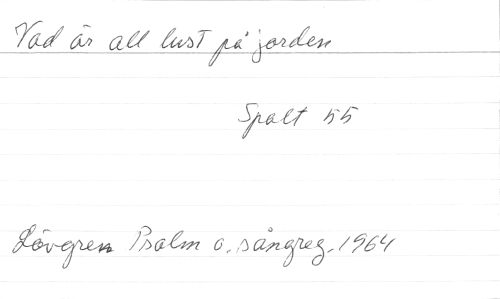 Vad är all lust på jorden
Spalt 55
Lövgren Psalm o. sångreg. 1964